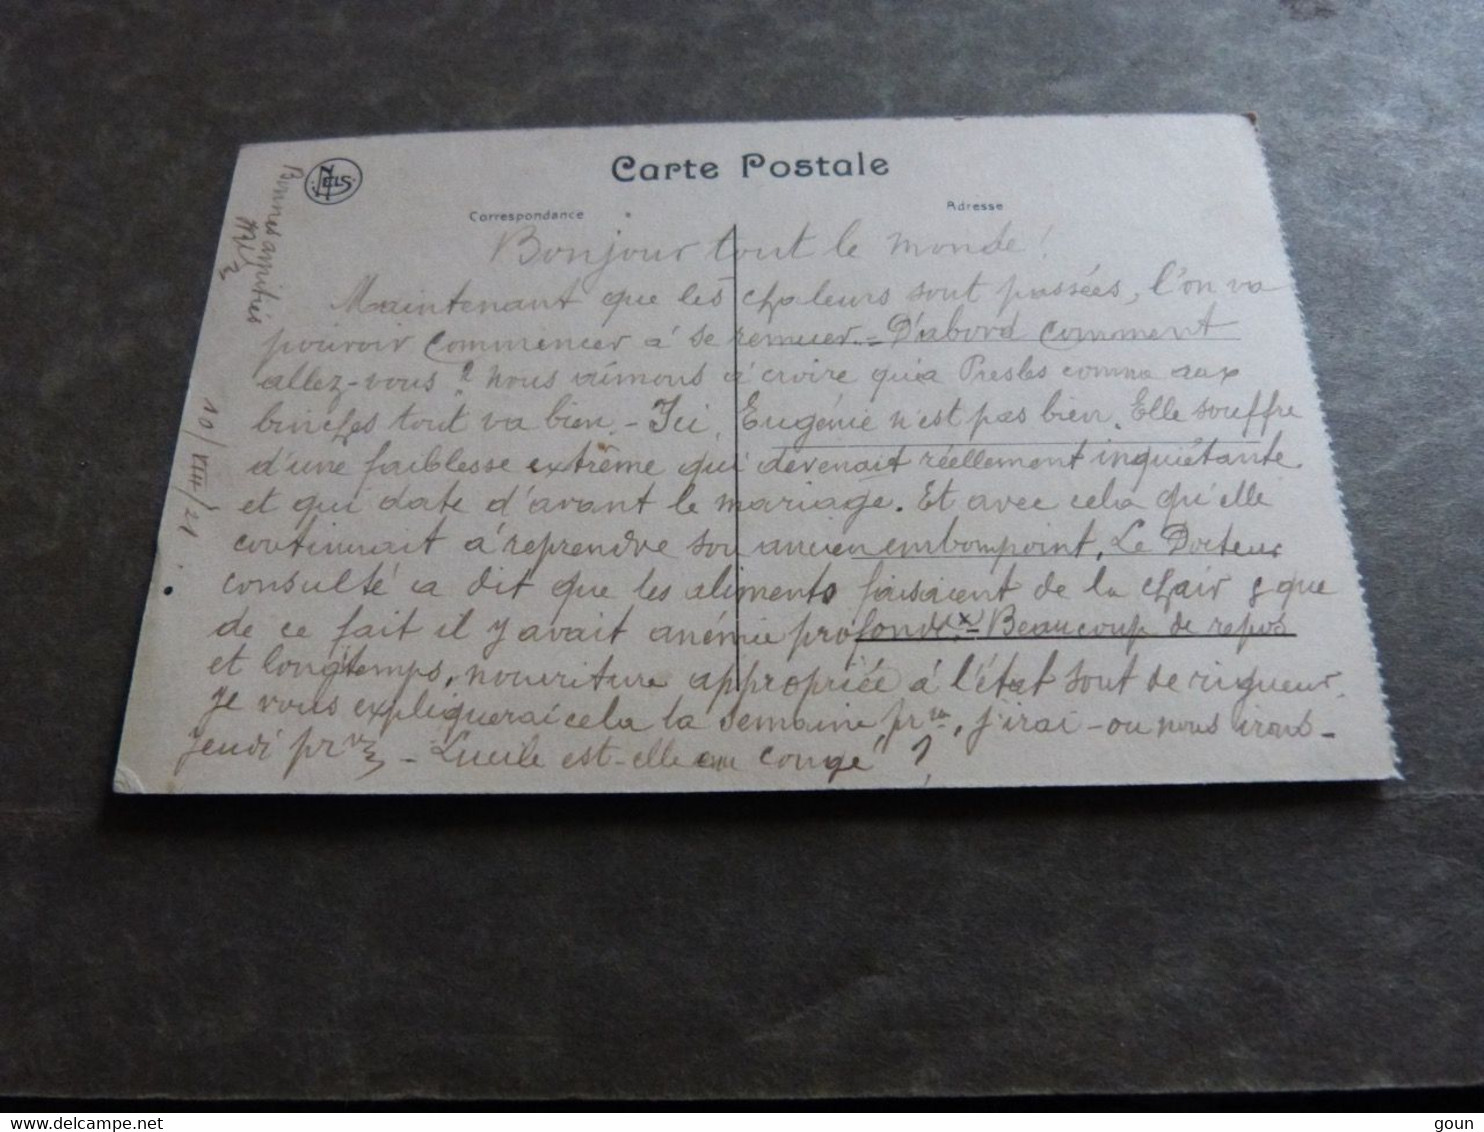 NELS
Carte Postale
Correspondance
Adresse
Bonjour tout le monde !
Maintenant que les chaleurs sont passées, l'on va
pouvoir commencer à se remuer. = D'abord comment
allez-vous ? nous aimons à croire qu'à Presles comme aux
binches tout va bien. - Ici, Eugénie n'est pas bien. Elle souffre
d'une faiblesse extrême qui devenait réellement inquiétante
et qui date d'avant le mariage. Et avec cela qu'elle
continuait à reprendre son ancien embompoint. Le Docteur
consulté a dit que les aliments faisaient de la chair & que
de ce fait il y avait anémie profonde (x) = Beaucoup de repos
et longtemps, nourriture appropriée à l'état sont de rigueur.
Je vous expliquerai cela la semaine prne, j'irai - ou nous irons -
jeudi pr - Lucile est-elle en congé ?
Bonnes amitiés
10/VIII/21
delcampe.net
goun